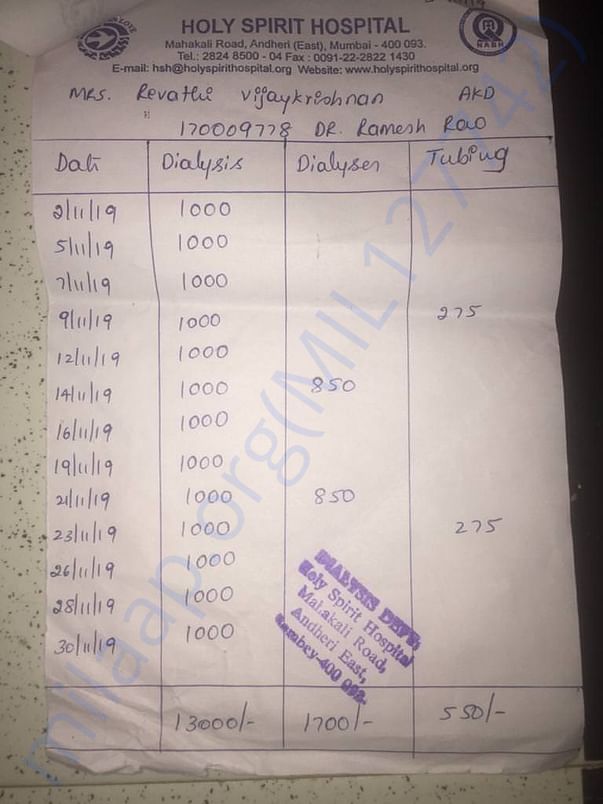 HOLY SPIRIT HOSPITAL
Mahakali Road, Andheri (East), Mumbai - 400 093.
Tel.: 2824 8500 - 04 Fax : 0091-22-2822 1430
E-mail: hsh@holyspirithospital.org Website: www.holyspirithospital.org
NABH
Mrs. Revathi Vijaykrishnan AKD
170009778 DR. Ramesh Rao
Date Dialysis Dialyser Tubing
2/11/19 1000
5/11/19 1000
7/11/19 1000
9/11/19 1000 275
12/11/19 1000
14/11/19 1000 850
16/11/19 1000
19/11/19 1000
21/11/19 1000 850
23/11/19 1000 275
26/11/19 1000
28/11/19 1000
30/11/19 1000
DIALYSIS DEPT.
Holy Spirit Hospital
Mahakali Road,
Andheri East,
Bombay-400 093.
13000/- 1700/- 550/-